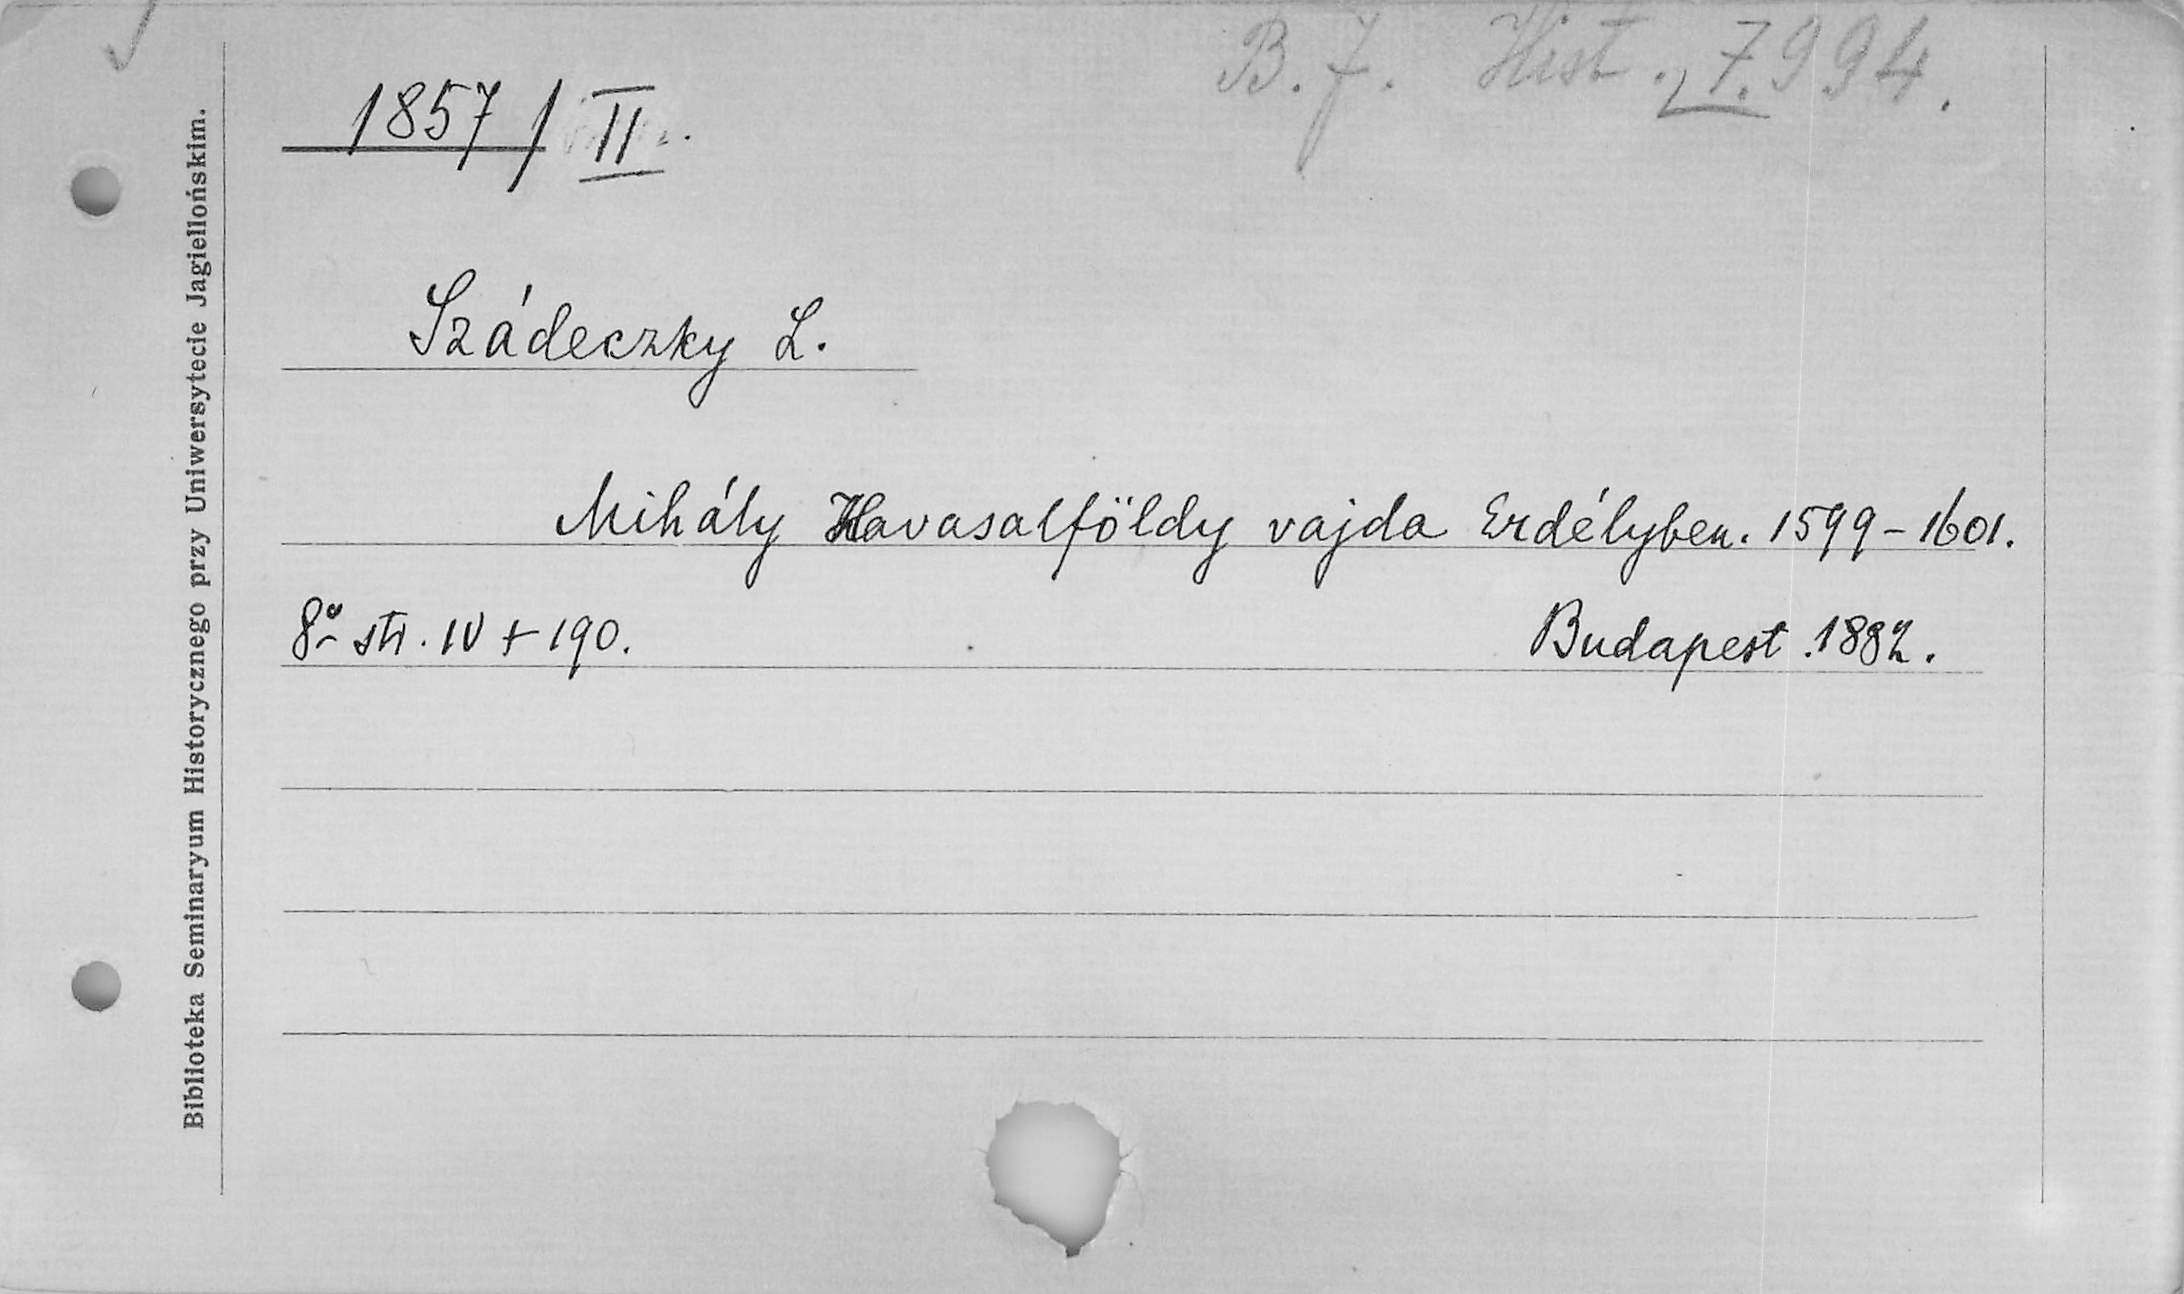 B. J. Hist. 7.994.
1857 / II
Szádeczky L.
Mihály Havasalföldy vajda Erdélyben. 1599-1601.
8º str. IV + 190. Budapest. 1882.
Biblioteka Seminaryum Historycznego przy Uniwersytecie Jagiellońskim.